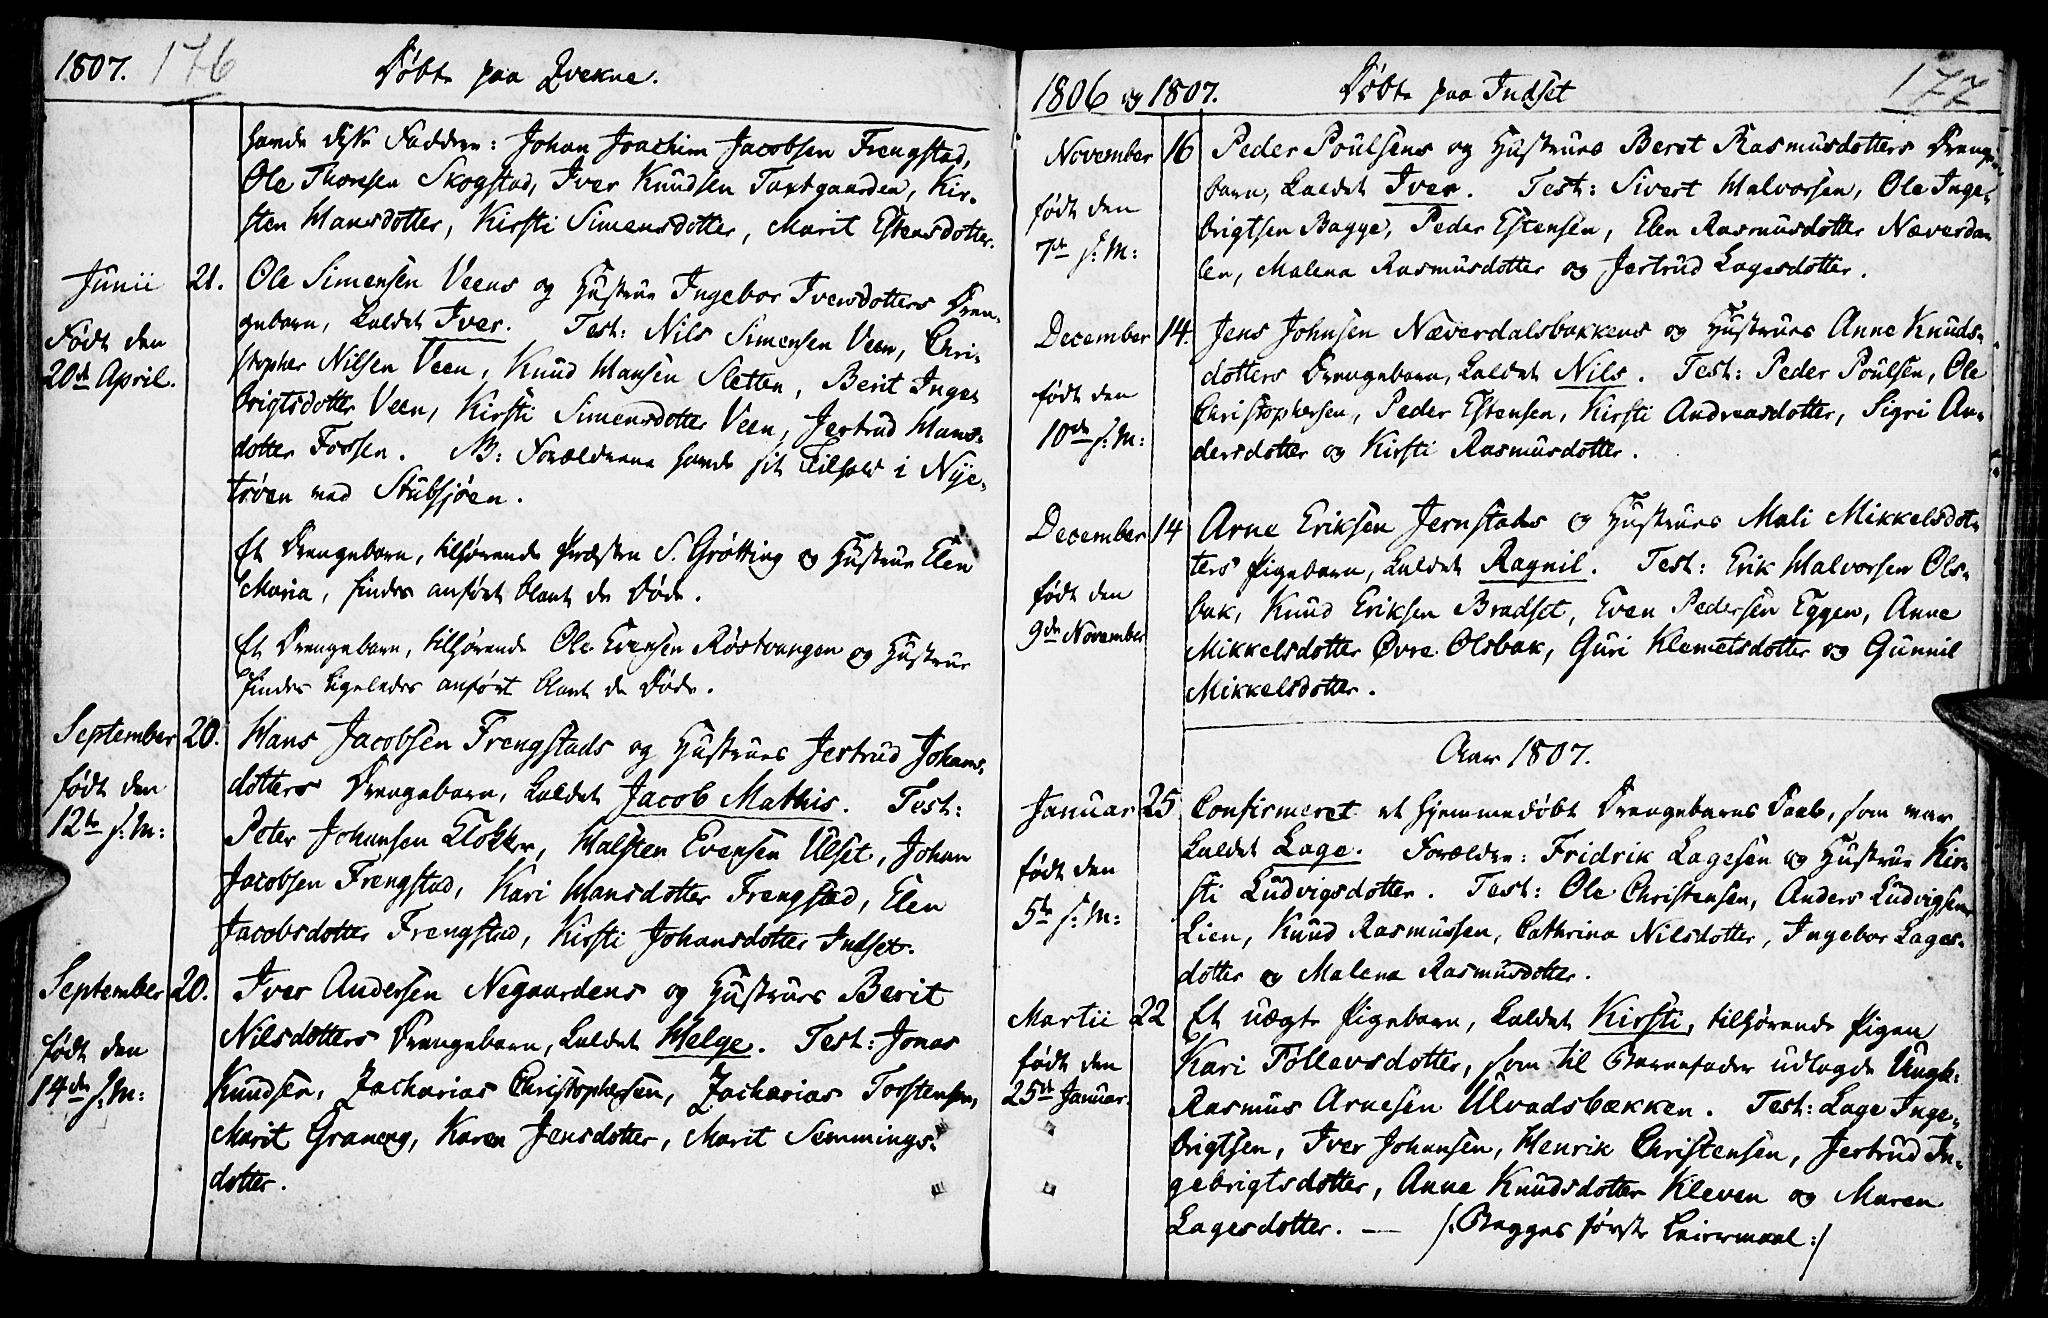 1807. 176 Døbte paa Qvekne.
havde disse Faddere: Johan Joachim Jacobsen Frengstad,
Ole Thoresen Skogstad, Iver Knudsen Taxtgaarden, Kir-
sten Hansdotter, Kirsti Simensdotter, Marit Estensdotter.
Junii 21. Ole Simensen Veens og Hustrue Ingebor Iversdotters Dren-
gebarn, kaldet Iver. Test: Nils Simensen Veen, Chri-
Født den
stopher Nilsen Veen, Knud Hansen Sletten, Berit Inge-
20de April.
brigtsdotter Veen, Kirsti Simensdotter Veen, Jertrud Hans-
dotter Fossen. NB: Forældrene havde sit Tilhold i Nÿe-
trøen ved Stubsjøen.
Et Drengebarn, tilhørende Præsten S. Grøtting og Hustrue Elen
Maria, findes anført blant de Døde.
Et Drengebarn, tilhørende Ole Evensen Røstvangen og Hustrue
findes ligeledes anført blant de Døde.
September 20. Hans Jacobsen Frengstads og Hustrues Jertrud Johans-
dotters Drengebarn, kaldet Jacob Mathis. Test:
født den
12te s: M:
Peter Johansen Klokker, Halsten Evensen Ulset, Johan
Jacobsen Frengstad, Kari Hansdotter Frengstad, Elen
Jacobsdotter Frengstad, Kirsti Johansdotter Indset.
September 20. Iver Andersen Negaardens og Hustrues Berit
Nilsdotters Drengebarn, kaldet Helge. Test: Jonas
født den
14de s: M:
Knudsen, Zacharias Christophersen, Zacharias Torstensen,
Marit Graneng, Karen Jensdotter, Marit Semmings-
dotter.
1806 og 1807. Døbte paa Indset 177
November 16 Peder Poulsens og Hustrues Beret Rasmusdotters Drenge-
barn, kaldet Iver. Test: Sivert Halvorsen, Ole Inge-
født den
brigtsen Bagge, Peder Estensen, Elen Rasmusdotter Næverda-
7de s: M:
len, Malena Rasmusdotter og Jertrud Lagesdotter.
December 14. Jens Johnsen Næverdalsbakkens og Hustrues Anne Knuds-
dotters Drengebarn, kaldet Nils. Test: Peder Poulsen, Ole
født den
Christophersen, Peder Estensen, Kirsti Andreasdotter, Sigri An-
10de s: M:
dersdotter og Kirsti Rasmusdotter.
December 14 Arne Eriksen Jernstads og Hustrues Mali Mikkelsdot-
ters Pigebarn, kaldet Ragnil. Test: Erik Halvorsen Ols-
født den
bak, Knud Eriksen Bradset, Even Pedersen Eggen, Anne
9de November
Mikkelsdotter Øvre Olsbak, Guri Klemetsdotter og Gunnil
Mikkelsdotter.
Aar 1807.
Januar 25 Confirmeret et hjemmedøbt Drengebarns Daab, som var
kaldet Lage. Forældre: Fridrik Lagesen og Hustrue Kir-
født den
sti Ludvigsdotter. Test: Ole Christensen, Anders Ludvigsen
5te s: M:
Lien, Knud Rasmussen, Cathrina Nilsdotter, Ingebor Lages-
dotter og Malena Rasmusdotter.
Martii 22 Et uægte Pigebarn, kaldet Kirsti, tilhørende Pigen
født den
Kari Tollevsdotter, som til Barnefader udlagde Ungk:
25de Januar.
Rasmus Arnesen Ulvadsbækken. Test: Lage Inge-
brigtsen, Iver Johansen, Henrik Christensen, Jertrud In-
gebrigtsdotter, Anne Knudsdotter Kleven og Maren
Lagesdotter. — /: Begges første Leiermaal :/